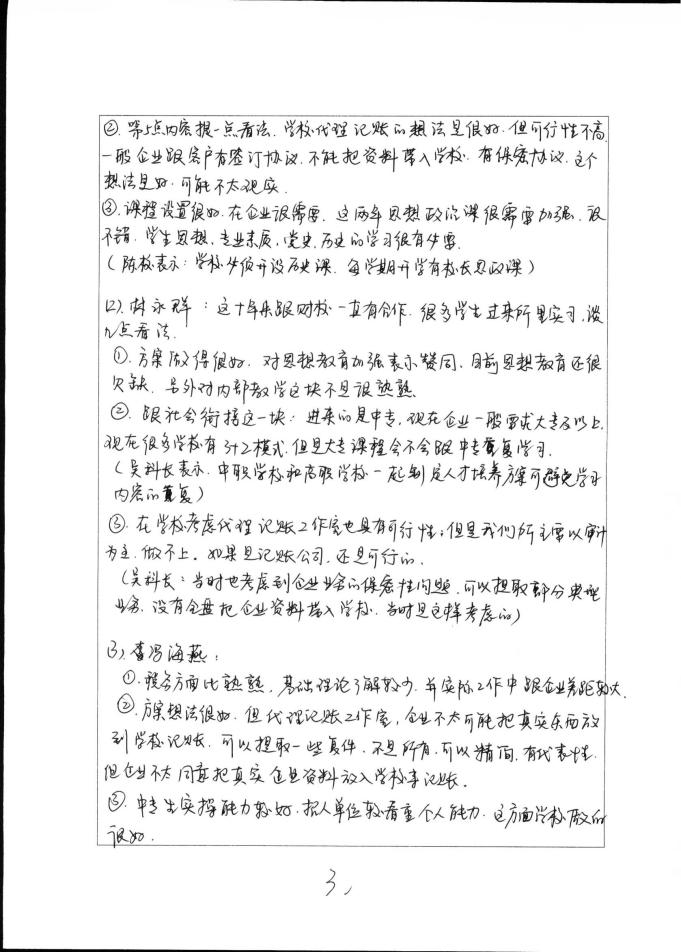 ②. 第5点内容提一点看法. 学校代理记账的想法是很好. 但可行性不高.
一般企业跟客户有签订协议. 不能把资料带入学校. 有保密协议. 这个
想法是好. 可能不太现实.
③. 课程设置很好. 在企业很需要. 这两年思想政治课很需要加强. 很
不错. 学生思想, 专业素质, 党史, 历史的学习很有必要.
(陈校表示: 学校必须开设历史课. 每学期开学有校长思政课)
(2). 林永群: 这十年来跟财校一直有合作. 很多学生过来所里实习, 谈
几点看法.
①. 方案做得很好. 对思想教育加强表示赞同, 目前思想教育还很
欠缺. 另外对内部教学这块不是很熟悉.
②. 跟社会衔接这一块: 进来的是中专, 现在企业一般要求大专及以上.
现在很多学校有3+2模式. 但是大专课程会不会跟中专重复学习.
(吴科长表示, 中职学校和高职学校一起制定人才培养方案可避免学习
内容的重复)
③. 在学校考虑代理记账工作室也具有可行性; 但是我们所主要以审计
为主, 做不上. 如果是记账公司, 还是可行的.
(吴科长: 当时也考虑到企业业务的保密性问题, 可以提取部分典型
业务, 没有全盘把企业资料带入学校. 当时是这样考虑的)
(3). 冯海燕:
①. 税务方面比较熟, 基础理论了解较少. 并实际工作中跟企业差距较大.
②. 方案想法很好. 但代理记账工作室, 企业不太可能把真实东西放
到学校记账. 可以提取一些复件. 不是所有. 可以精而, 有代表性.
但企业不太同意把真实企业资料放入学校来记账.
③. 中专生实操能力较好. 招人单位较看重个人能力. 这方面学校做的
很好.
3,